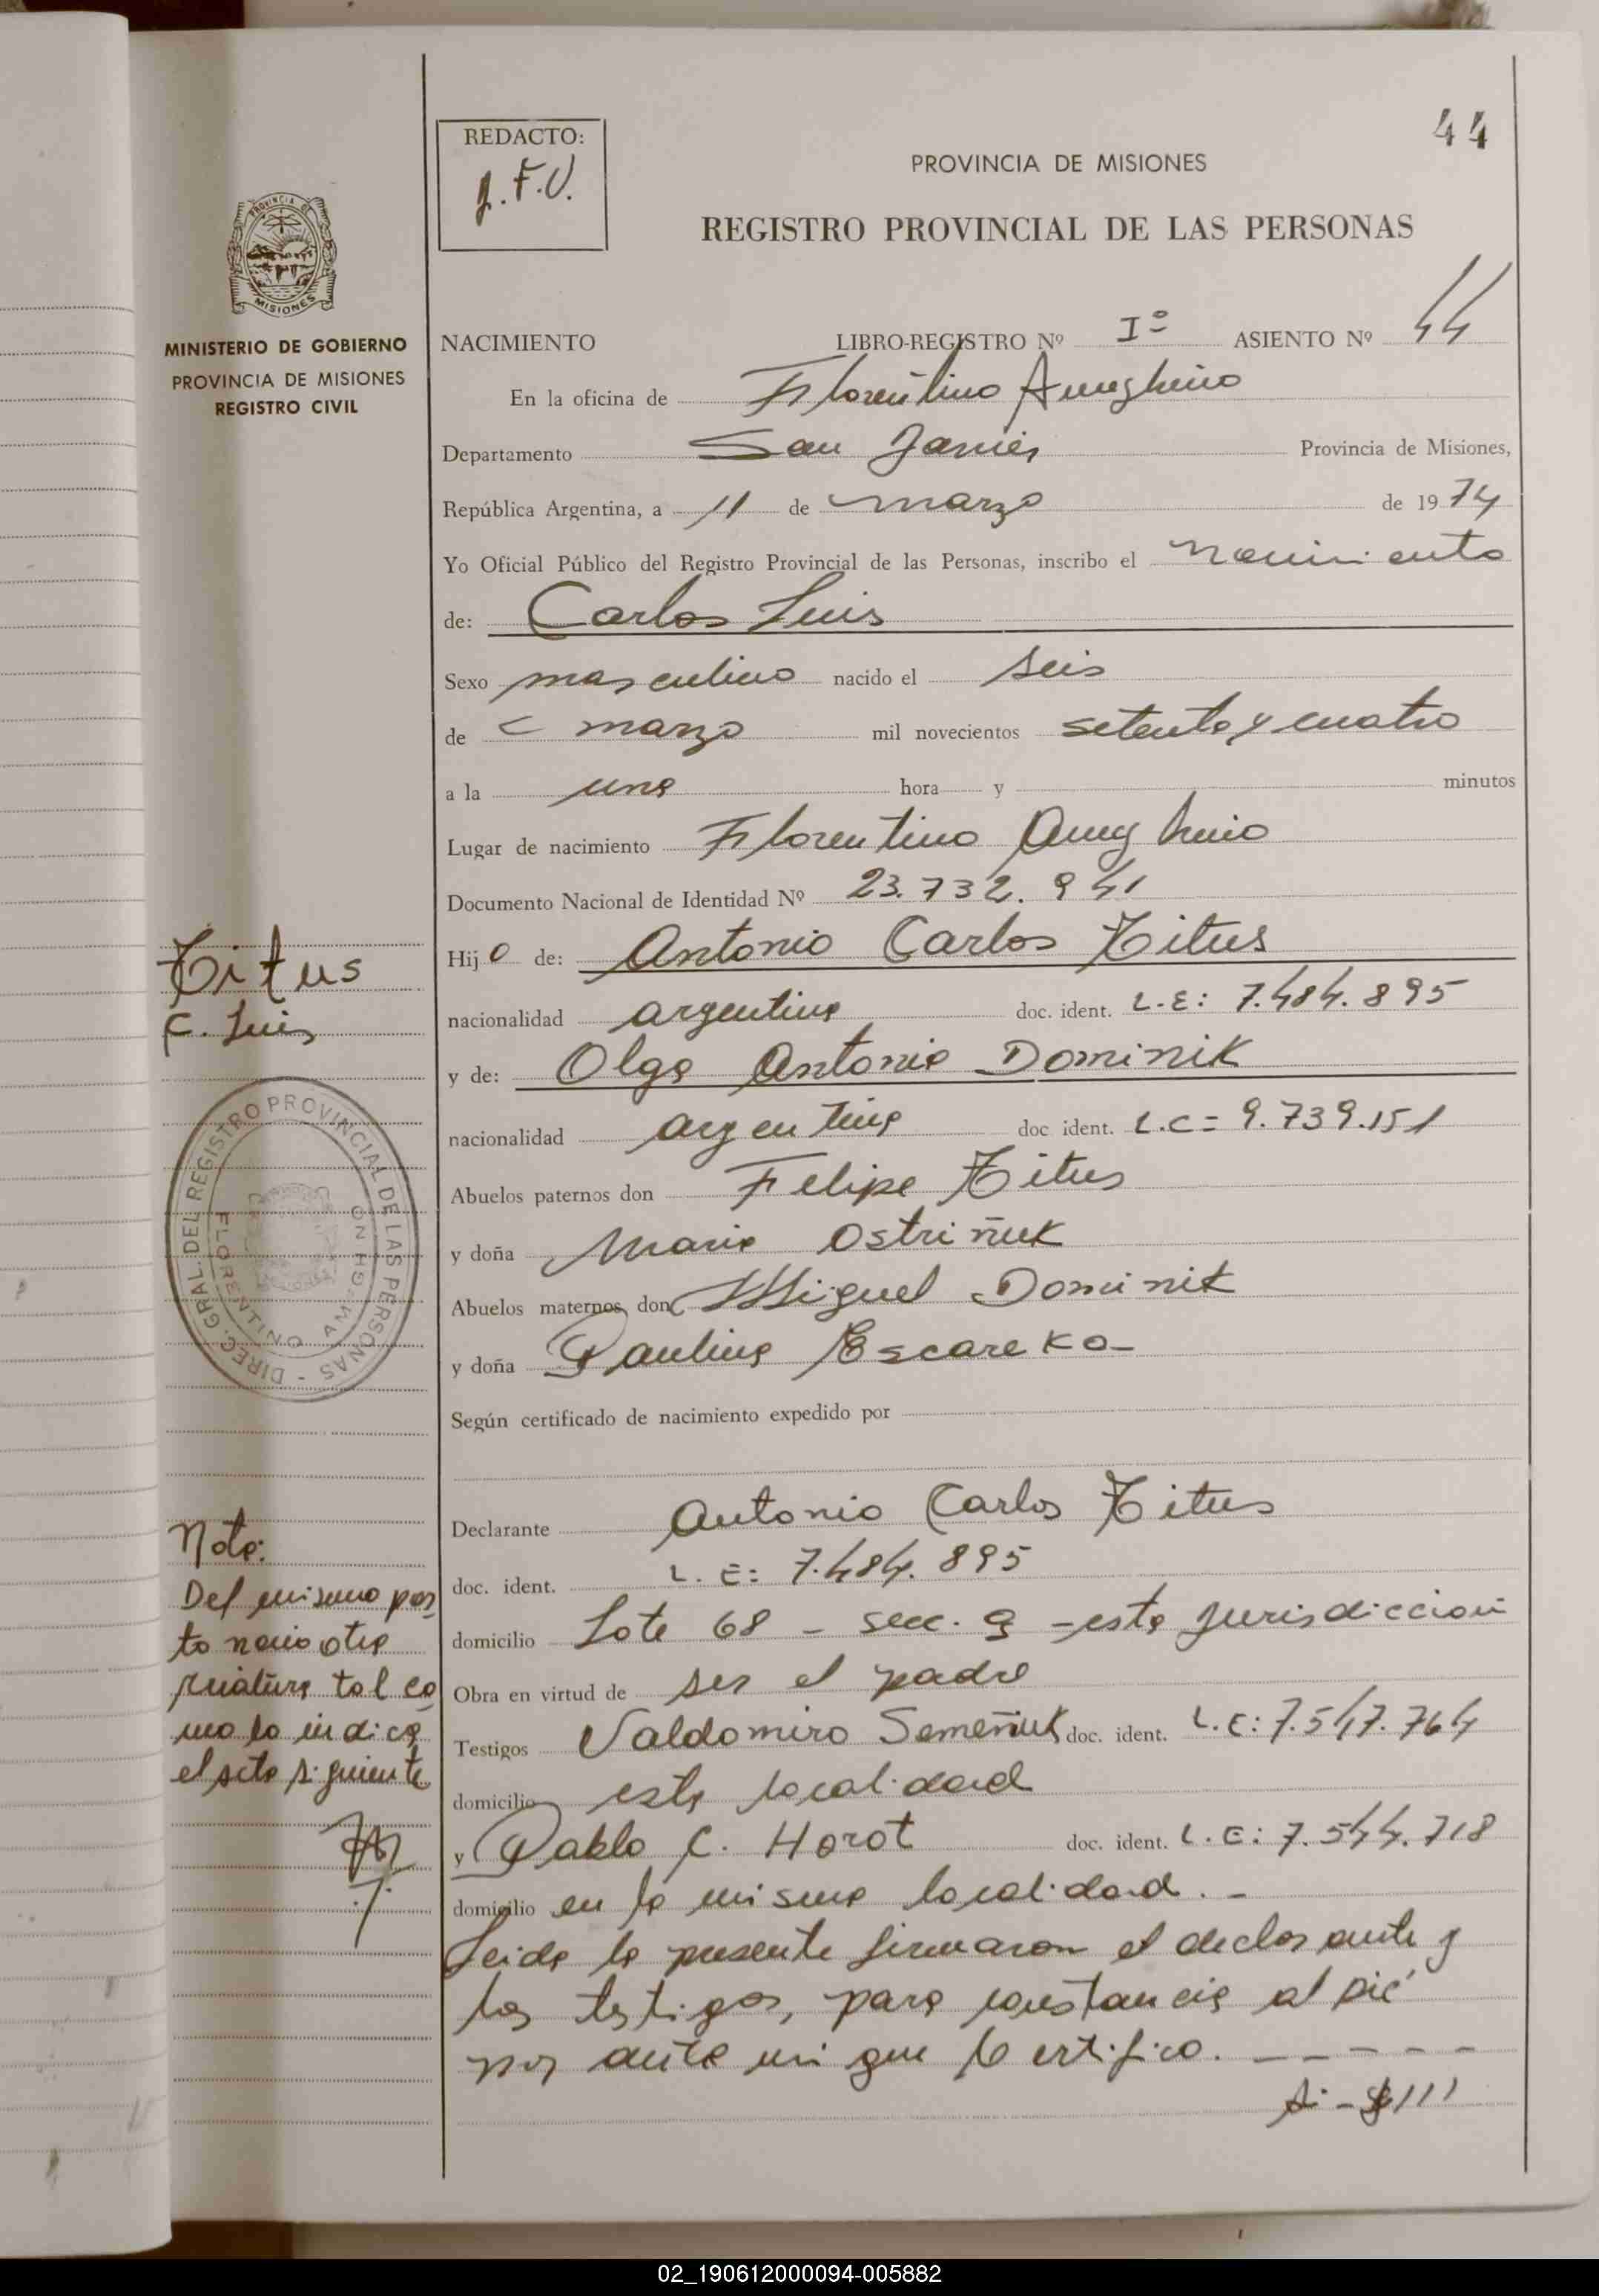 44
REDACTO:
J.F.V.
PROVINCIA DE MISIONES
REGISTRO PROVINCIAL DE LAS PERSONAS
PROVINCIA DE
MISIONES
MINISTERIO DE GOBIERNO
PROVINCIA DE MISIONES
REGISTRO CIVIL
NACIMIENTO LIBRO-REGISTRO Nº Iº ASIENTO Nº 44
En la oficina de Florentino Ameghino
Departamento San Javier Provincia de Misiones,
República Argentina, a 11 de marzo de 1974
Yo Oficial Público del Registro Provincial de las Personas, inscribo el nacimiento
de: Carlos Luis
Sexo masculino nacido el seis
de marzo mil novecientos setenta y cuatro
a la una hora y minutos
Lugar de nacimiento Florentino Ameghino
Documento Nacional de Identidad Nº 23.732.941
Hijo de: Antonio Carlos Titus
nacionalidad argentina doc. ident. L.E: 7.484.895
y de: Olga Antonia Dominik
nacionalidad argentina doc ident. L.C= 9.739.151
Abuelos paternos don Felipe Titus
y doña Maria Ostriñuk
Abuelos maternos don Miguel Dominik
y doña Paulina Escareko-
Según certificado de nacimiento expedido por
Declarante Antonio Carlos Titus
doc. ident. L.E: 7.484.895
domicilio Lote 68 - secc. 9 - esta jurisdiccion
Obra en virtud de ser el padre
Testigos Valdomiro Semeñiuk doc. ident. L.E: 7.547.764
domicilio esta localidad
y Pablo C. Horot doc. ident. L.E: 7.544.718
domicilio en la misma localidad.-
Leida la presente firmaron el declarante y
los testigos, para constancia al pié
por ante mi que certifico. - - - - -
Titus
C. Luis
DIREC. GRAL. DEL REGISTRO PROVINCIAL DE LAS PERSONAS -
FLORENTINO AMEGHINO
Nota:
Del mismo par
to nacio otra
criatura tal co
mo lo indica
el acta siguiente
02_190612000094-005882